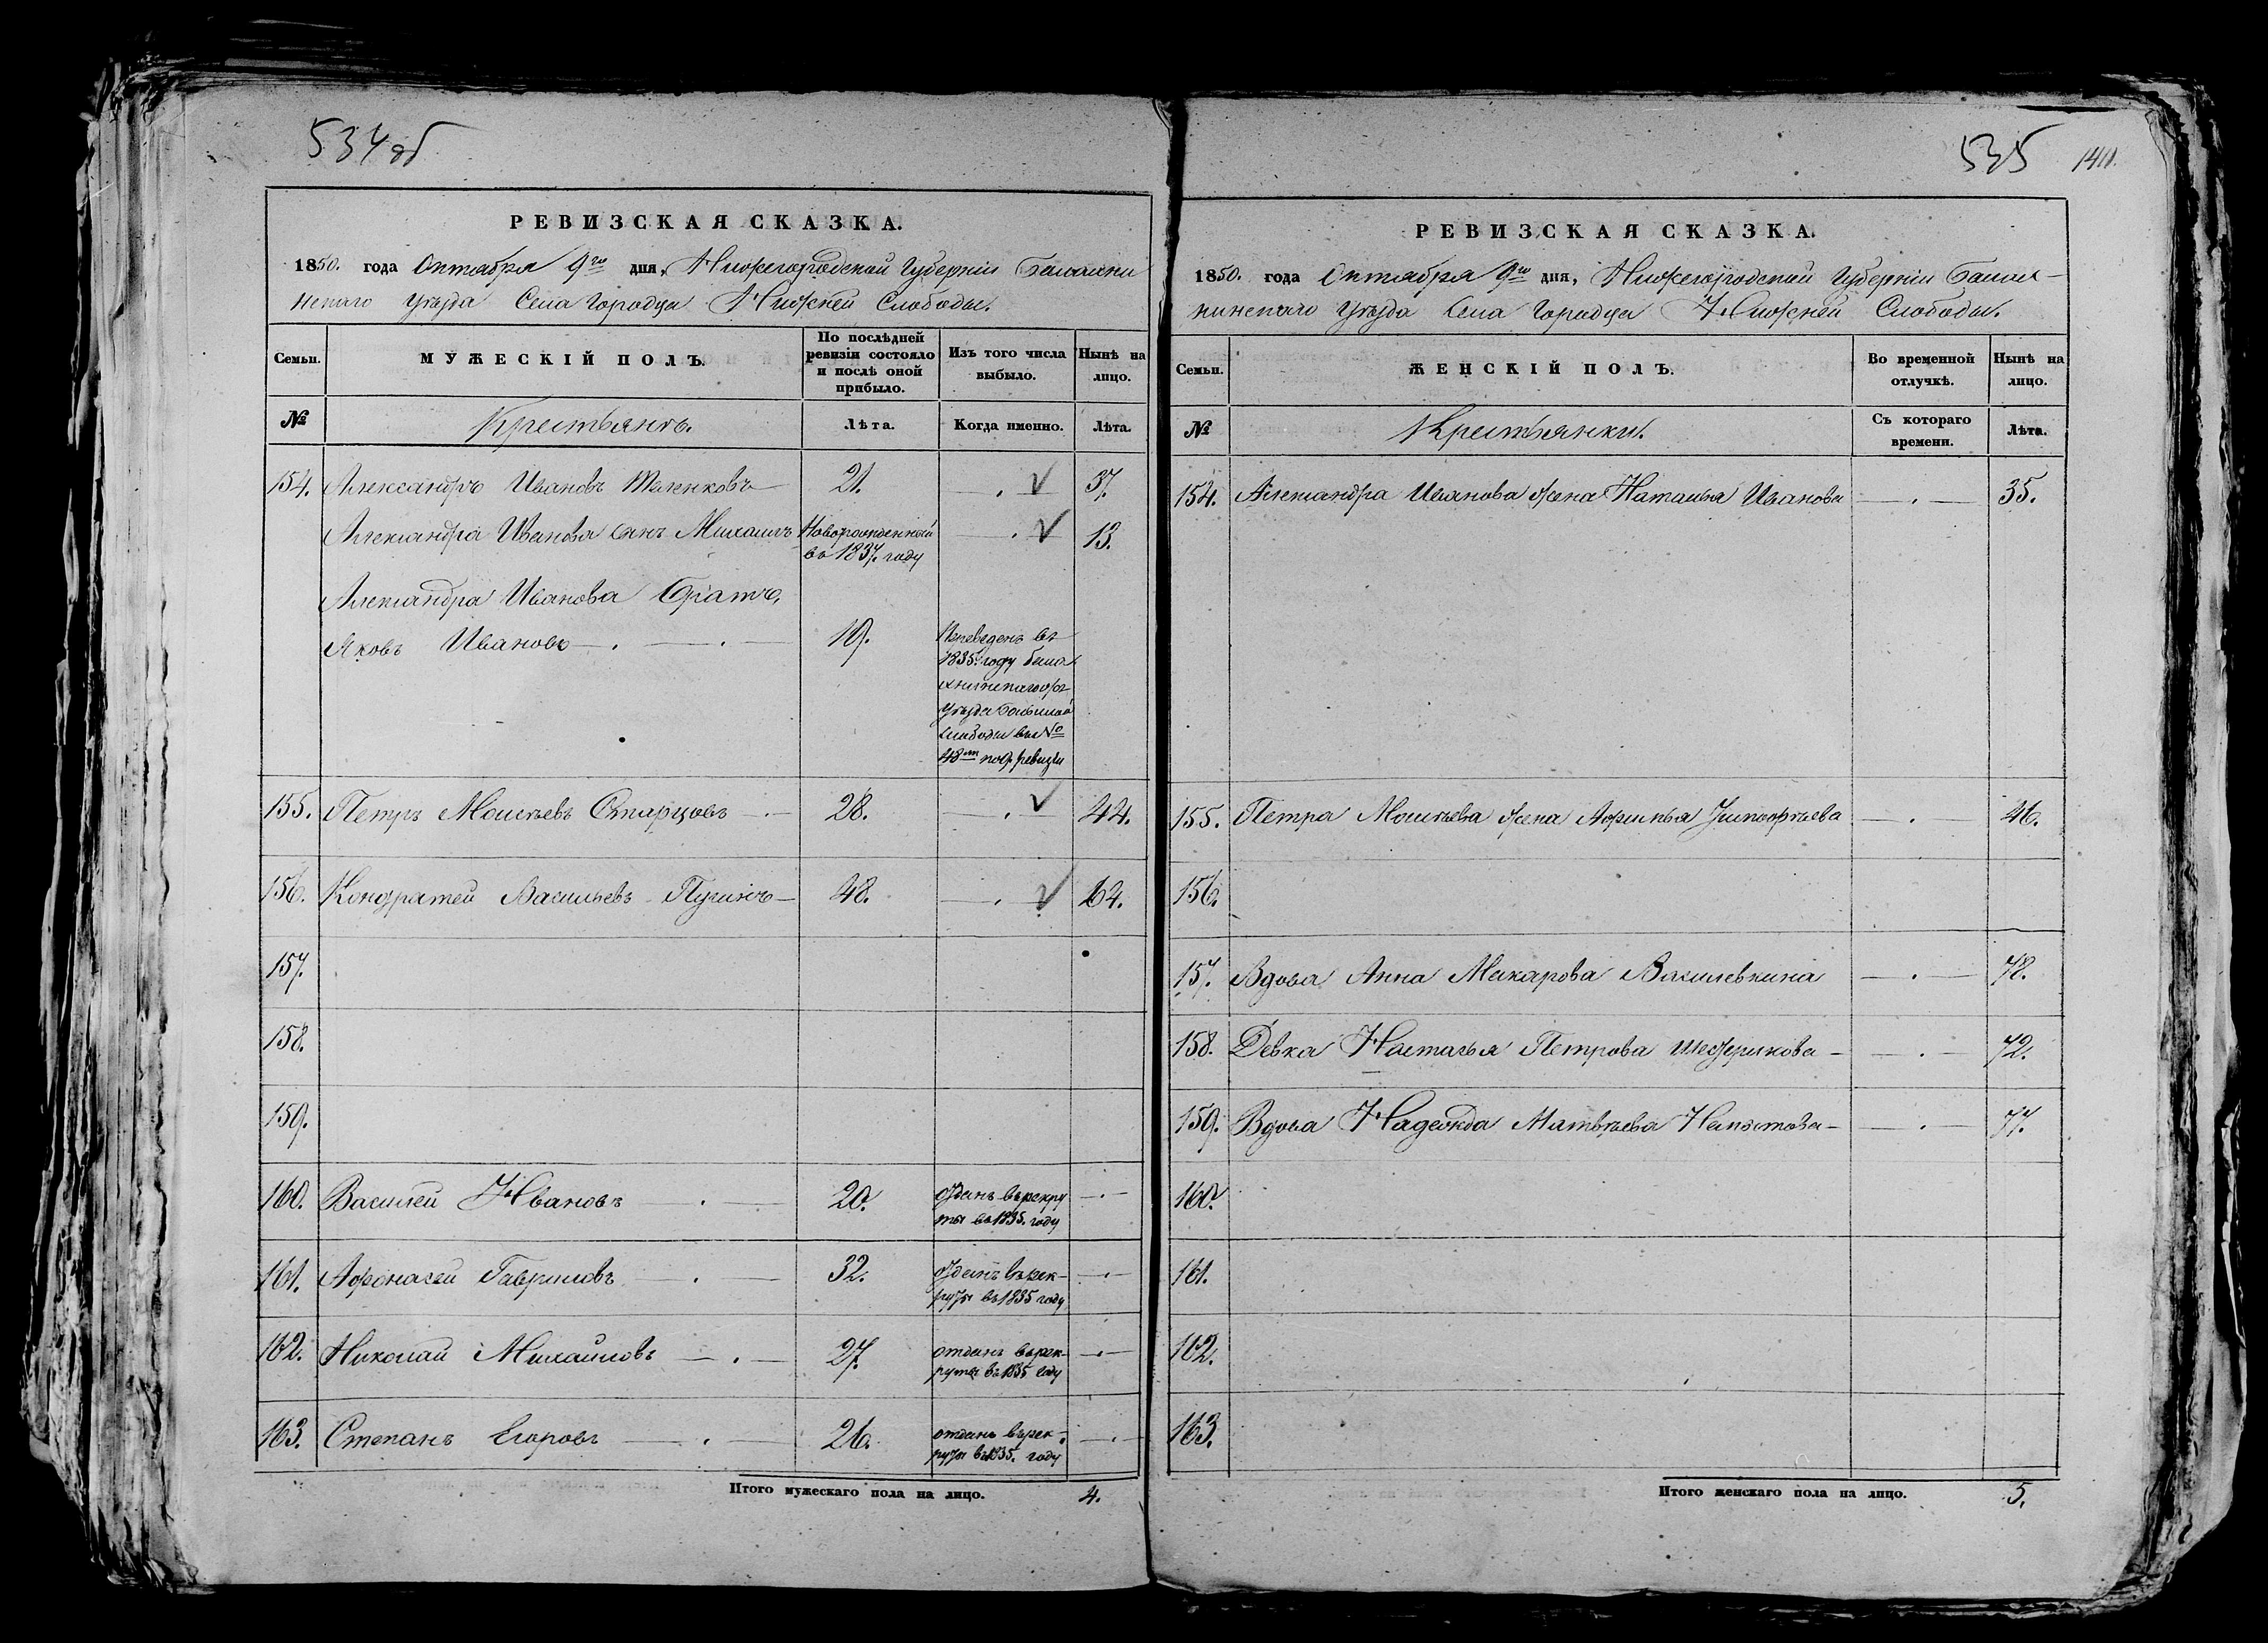 534 об
РЕВИЗСКАЯ СКАЗКА.
1850. года Октября 9го дня, Нижегородской Губерніи Балахни
нскаго Уѣзда Села Городца Нижней Слободы.
Семьи.
МУЖЕСКІЙ ПОЛЪ.
По послѣдней
ревизіи состояло
и послѣ оной
прибыло.
Изъ того числа
выбыло.
Нынѣ на
лицо.
№
Крестьянъ.
Лѣта.
Когда именно.
Лѣта.
154. Александръ Ивановъ 21. 37.
Александра Иванова сынъ Михаилъ Новорожденный 13.
въ 1837. году
Александра Иванова Братъ,
Яковъ Ивановъ 19. Переведенъ въ
1835. году Бала
Уѣзда Большой
Слободы въ №
48 по 9. ревизіи
155. Петръ Моисѣевъ Старцовъ 28. 44.
156. Кондратей Васильевъ Пугинъ 48. 64.
157.
158.
159.
160. Василей Ивановъ 20. отданъ въ рекру
ты въ 1835. году
161. Афонасей Гавриловъ 32. отданъ въ рек-
руты въ 1835 году
162. Николай Михайловъ 27. отданъ въ рек-
руты въ 1835 году
163. Степанъ Егоровъ 26. отданъ въ рек-
руты въ 1835. году
Итого мужескаго пола на лицо. 4.
535
РЕВИЗСКАЯ СКАЗКА.
1850. года Октября 9го дня, Нижегородской Губерніи Балах-
нинскаго Уѣзда Села Городца Нижней Слободы.
Семьи.
ЖЕНСКІЙ ПОЛЪ.
Во временной
отлучкѣ.
Нынѣ на
лицо.
№
Крестьянки.
Съ котораго
времени.
Лѣта.
154. Александра Иванова жена Наталья Иванова 35.
155. Петра Моисѣева жена Афимья 46.
156.
157. Вдова Анна Макарова Василевкина 78.
158. Девка Настасья Петрова 72.
159. Вдова Надежда Матвѣева 77.
160.
161.
162.
163.
Итого женскаго пола на лицо. 5.